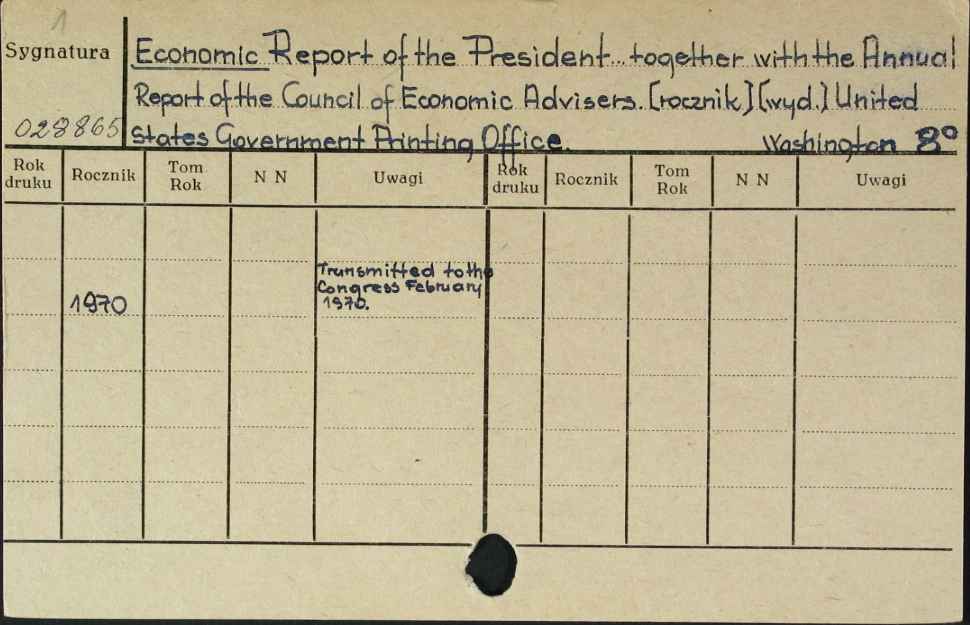 1
Sygnatura
Economic Report of the President... together with the Annual
Report of the Council of Economic Advisers. [rocznik] [wyd.] United
028865
States Government Printing Office. Washington 8°
Rok druku Rocznik Tom Rok N N Uwagi Rok druku Rocznik Tom Rok N N Uwagi
Transmitted to the
Congress February
1970 1970.